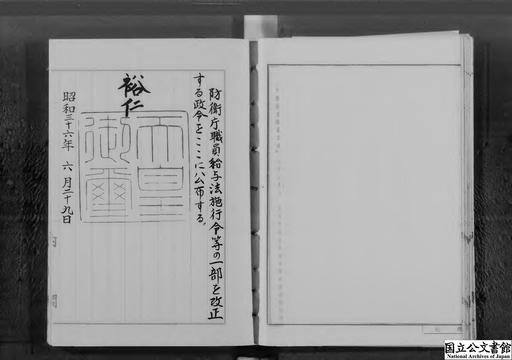 防衛庁職員給与法施行令等の一部を改正
する政令をここに公布する。
裕仁
天皇
御璽
昭和三十六年 六月二十九日
国立公文書館
National Archives of Japan